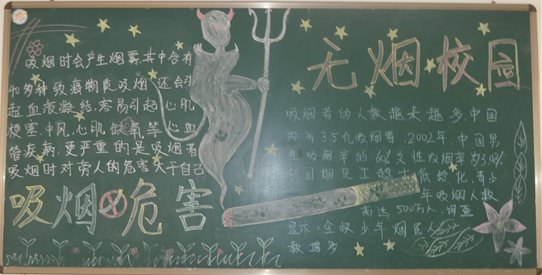 吸烟时会产生烟雾,其中含有
40多种致癌物质,吸烟还会引
起血液凝结,容易引起心肌
梗塞、中风、心肌缺氧等心血
管疾病,更严重的是吸烟者
吸烟时对旁人的危害大于自己
吸烟 危害
无烟校园
吸烟者的人数越来越多,中国
约有3.5亿吸烟者,2002年,中国男
性吸烟率的 女性吸烟率为3.08%
中国烟民 低龄化,青少
年吸烟人数
高达500万人,调查
显示,全 少年烟民
数 多